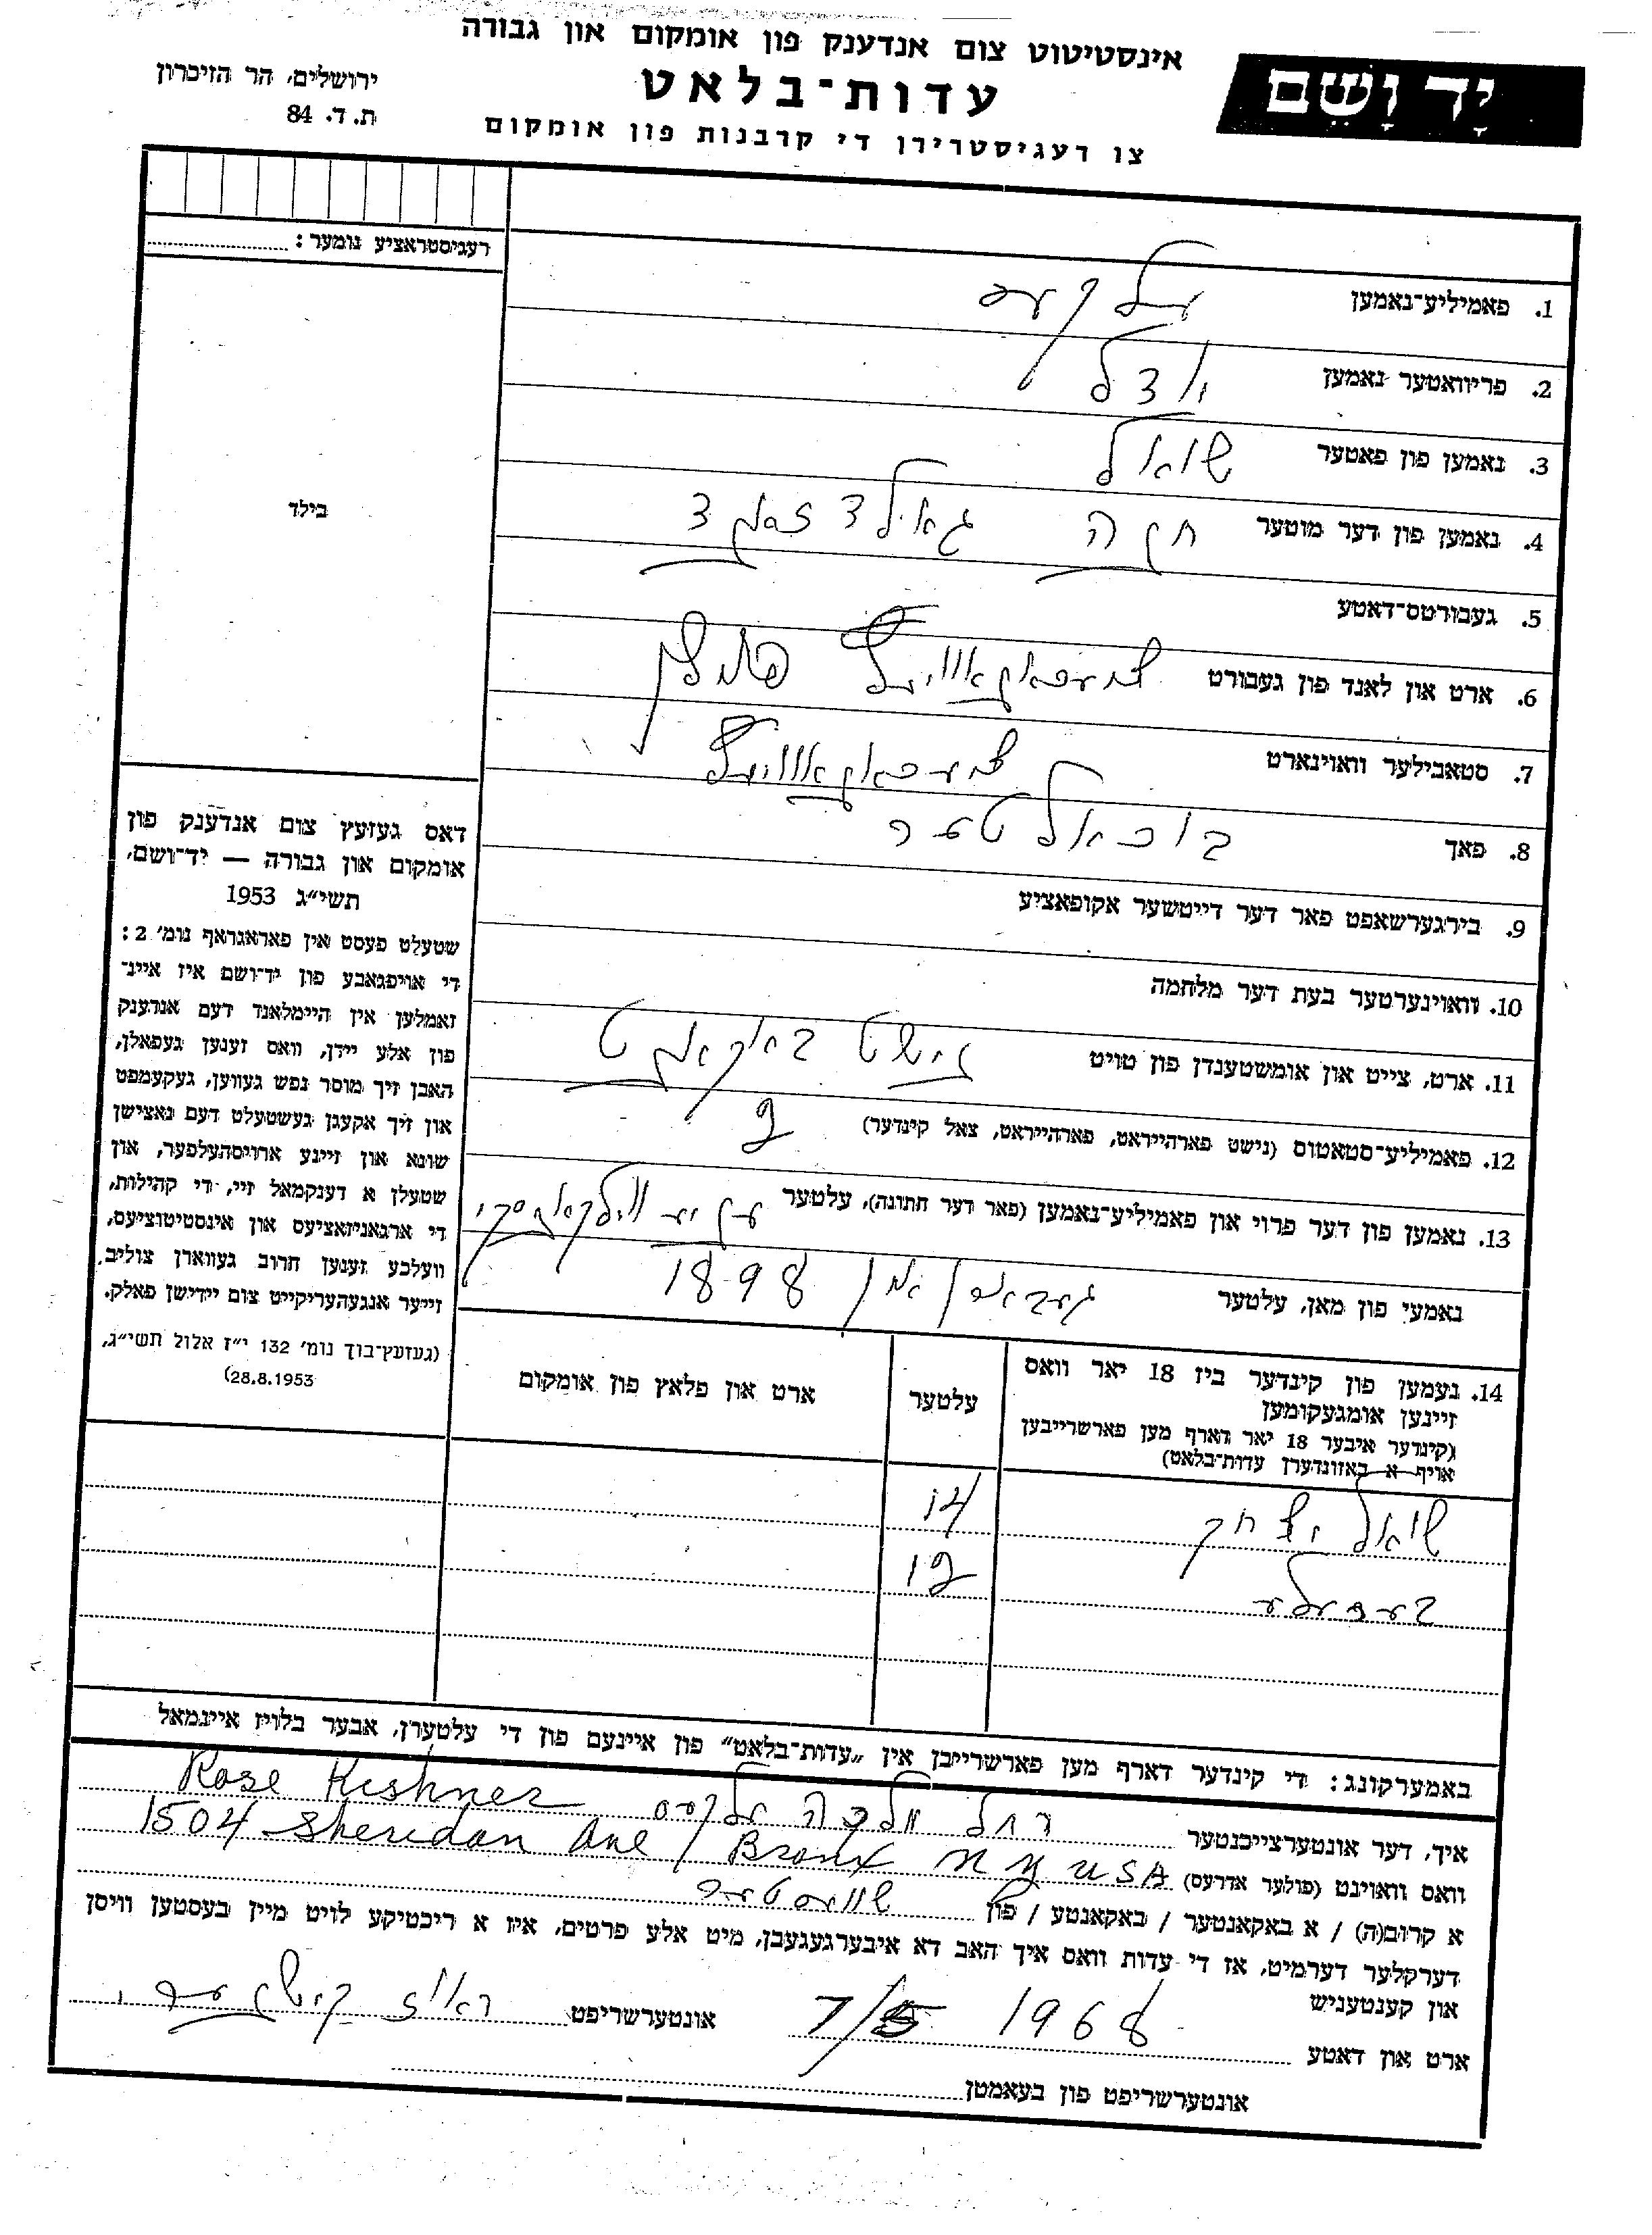 אינסטיטוט צום אנדענק פון אומקום און גבורה
יָד וָשֵׁם
עדות־בלאט
ירושלים, הר הזיכרון
ת. ד. 84
צו רעגיסטרירן די קרבנות פון אומקום
רעגיסטראציע נומער:
בילד
1. פאמיליע־נאמען
2. פריוואטער נאמען יודל
3. נאמען פון פאטער שואל
4. נאמען פון דער מוטער חנה גאולדזאנד
5. געבורטס־דאטע
6. ארט און לאנד פון געבורט פוילן
7. סטאבילער וואוינארט
8. פאך בוכאלטער
9. בירגערשאפט פאר דער דייטשער אקופאציע
10. וואוינערטער בעת דער מלחמה
11. ארט, צייט און אומשטענדן פון טויט נישט באקאנט
12. פאמיליע־סטאטוס (נישט פארהייראט, פארהייראט, צאל קינדער) 2
13. נאמען פון דער פרוי און פאמיליע־נאמען (פאר דער חתונה), עלטער
נאמען פון מאן, עלטער געבוירן אין 1898
דאס געזעץ צום אנדענק פון
אומקום און גבורה — יד־ושם,
תשי״ג 1953
שטעלט פעסט אין פאראגראף נומ׳ 2:
די אויפגאבע פון יד־ושם איז איינ־
זאמלען אין היימלאנד דעם אנדענק
פון אלע יידן, וואס זענען געפאלן,
האבן זיך מוסר נפש געווען, געקעמפט
און זיך אקעגן געשטעלט דעם נאצישן
שונא און זיינע ארויסהעלפער, און
שטעלן א דענקמאל זיי, די קהילות,
די ארגאניזאציעס און אינסטיטוציעס,
וועלכע זענען חרוב געווארן צוליב
זייער אנגעהעריקייט צום יידישן פאלק.
(געזעץ־בוך נומ׳ 132 י״ז אלול תשי״ג,
28.8.1953)
14. נעמען פון קינדער ביז 18 יאר וואס
זיינען אומגעקומען
(קינדער איבער 18 יאר דארף מען פארשרייבן
אויף א באזונדערן עדות־בלאט)
עלטער
ארט און פלאץ פון אומקום
שואל יצחק 14
12
באמערקונג: די קינדער דארף מען פארשרייבן אין „עדות־בלאט״ פון איינעם פון די עלטערן, אבער בלויז איינמאל
איך, דער אונטערצייכנטער רחל מלכה Rose Kishner
וואס וואוינט (פולער אדרעס) 1504 Sheridan Ave / Bronx N Y USA
א קרוב(ה) / א באקאנטער / באקאנטע / פון שוועסטער
דערקלער דערמיט, אז די עדות וואס איך האב דא איבערגעגעבן, מיט אלע פרטים, איז א ריכטיקע לויט מיין בעסטען וויסן
און קענטעניש
ארט און דאטע 7/5 1968 אונטערשריפט ראוז קישנער
אונטערשריפט פון בעאמטן